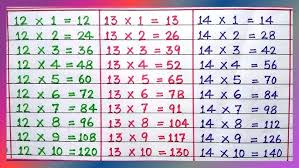 12 × 1 = 12
12 × 2 = 24
12 × 3 = 36
12 × 4 = 48
12 × 5 = 60
12 × 6 = 72
12 × 7 = 84
12 × 8 = 96
12 × 9 = 108
12 × 10 = 120
13 × 1 = 13
13 × 2 = 26
13 × 3 = 39
13 × 4 = 52
13 × 5 = 65
13 × 6 = 78
13 × 7 = 91
13 × 8 = 104
13 × 9 = 117
13 × 10 = 130
14 × 1 = 14
14 × 2 = 28
14 × 3 = 42
14 × 4 = 56
14 × 5 = 70
14 × 6 = 84
14 × 7 = 98
14 × 8 = 112
14 × 9 = 126
14 × 10 = 140